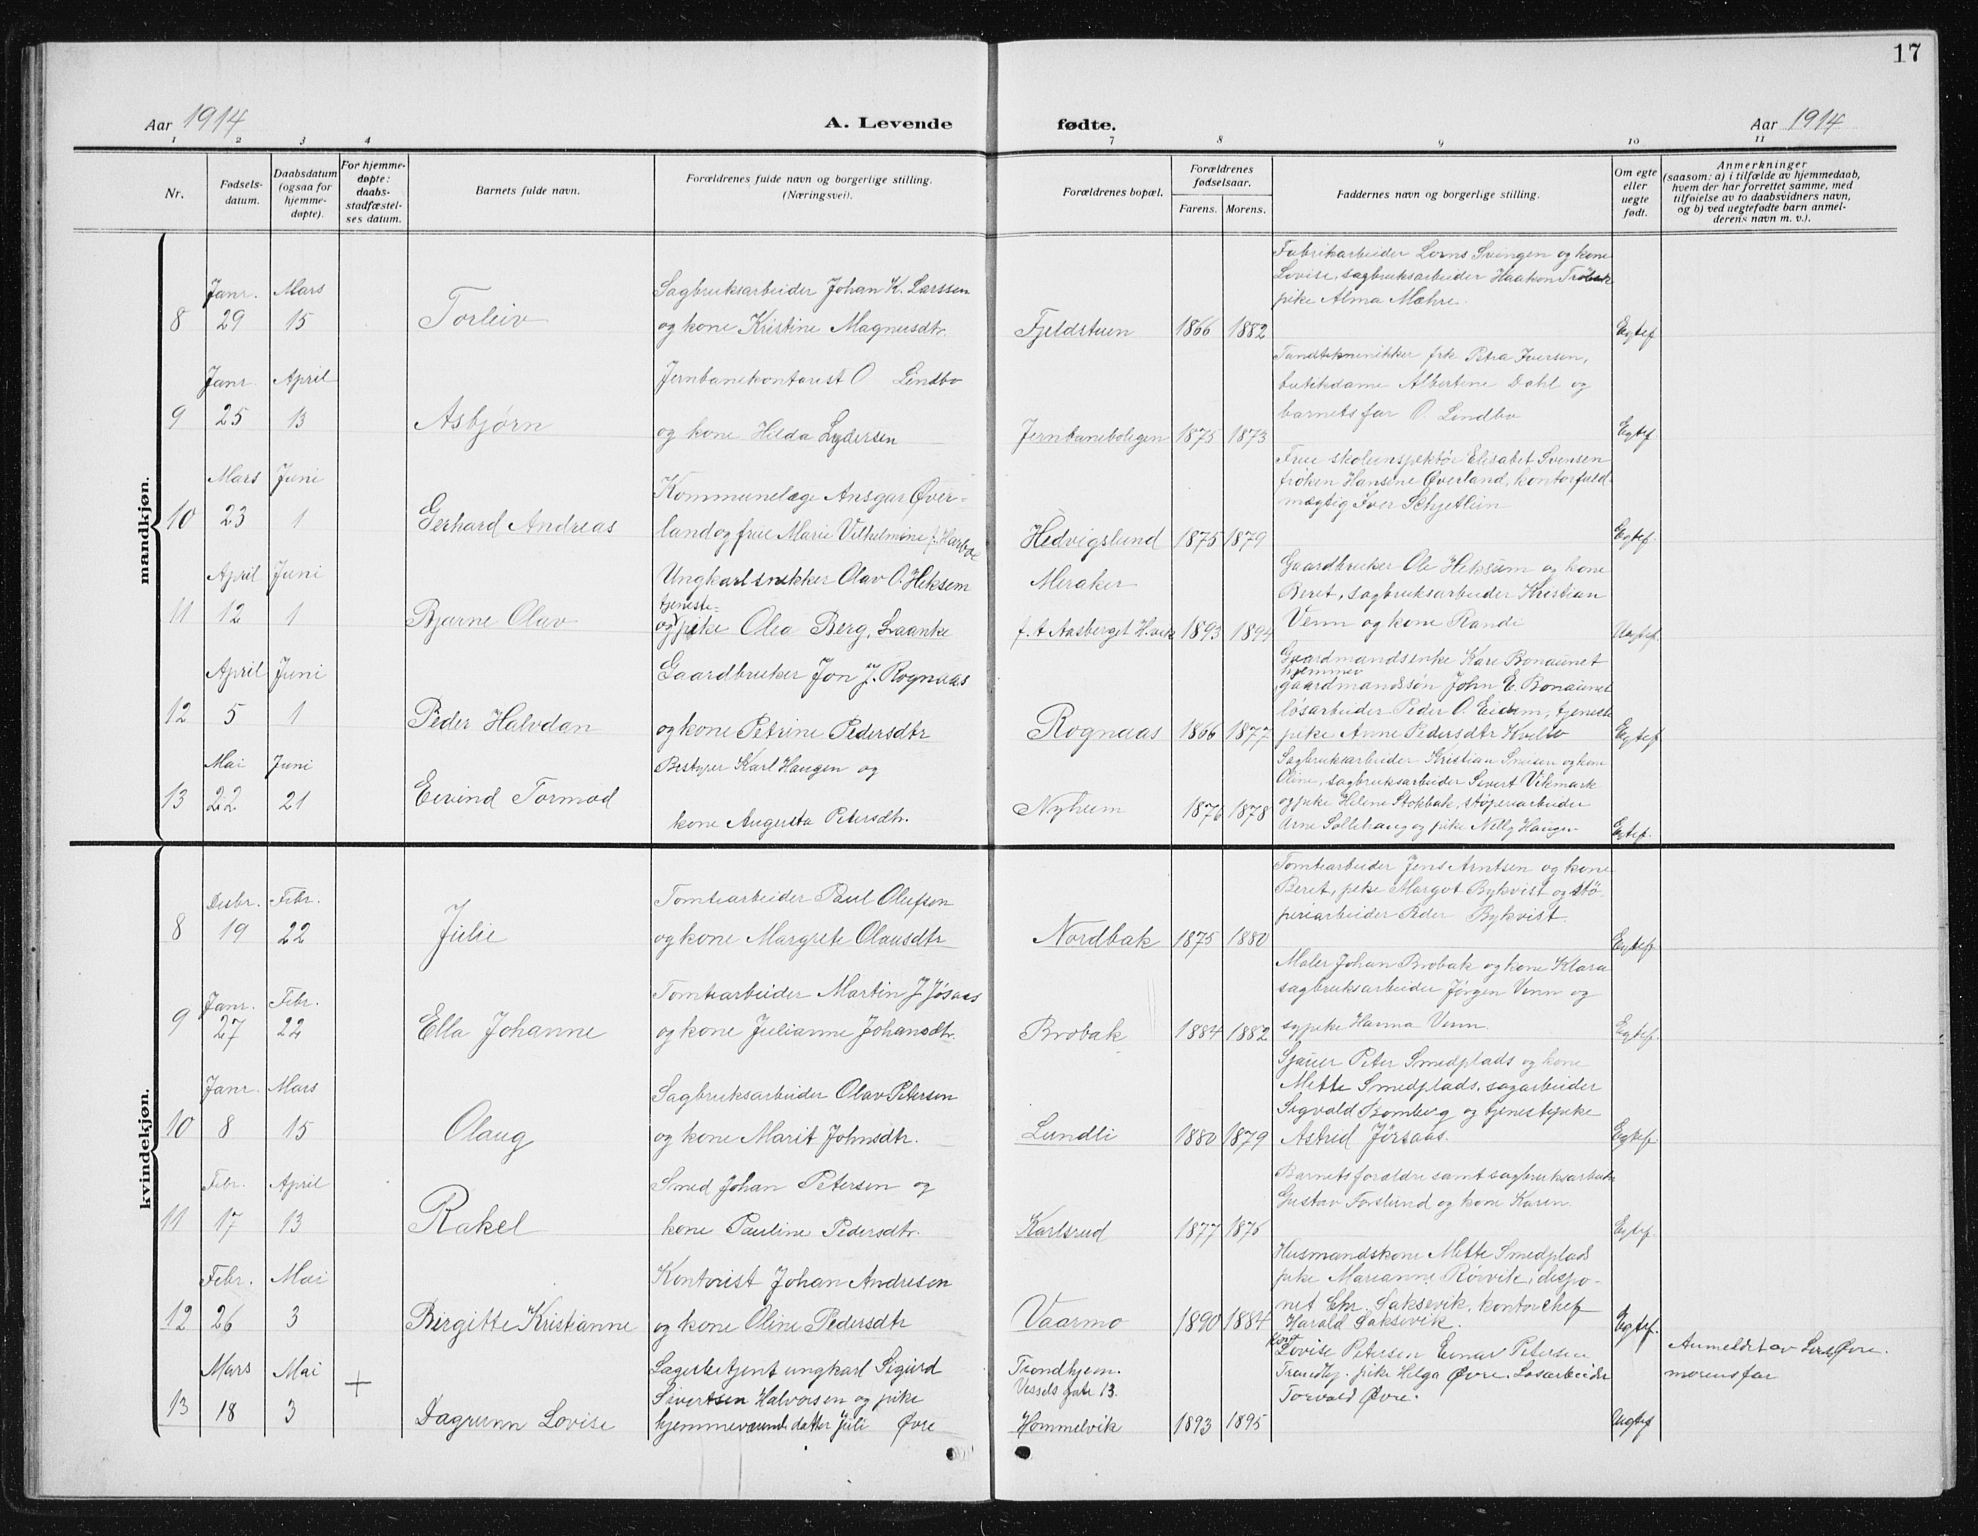 17
Aar 1914 A. Levende fødte. Aar 1914
1 2 3 4 7 8 9 10 11
Nr.
Fødsels-
datum.
Daabsdatum
(ogsaa for
hjemme-
døpte).
For hjemme-
døpte:
daabs-
stadfæstel-
ses datum.
Barnets fulde navn.
Forældrenes fulde navn og borgerlige stilling.
(Næringsvei).
Forældrenes bopæl.
Forældrenes
fødselsaar.
Farens. Morens.
Faddernes navn og borgerlige stilling.
Om egte
eller
uegte
født.
Anmerkninger
(saasom: a) i tilfælde av hjemmedaab,
hvem der har forrettet samme, med
tilføielse av to daabsvidners navn,
og b) ved uegtefødte barn anmel-
derens navn m. v.).
mandkjøn.
8
Janr. 29
Mars 15
Torleiv
Sagbruksarbeider Johan K. Larssen
og kone Kristine Magnusdtr.
Fjeldstuen
1866 1882
Fabrikarbeider Lorns Svingen og kone
Lovise, sagbruksarbeider Haakon
pike Alma Mæhre.
Egtef
9
Janr. 25
April 13
Asbjørn
Jernbanekontorist O. Lindbo
og kone Hilda Lydersen
Jernbaneboligen
1875 1873
Tandtekninikker frk Petra Iversen,
butikdame Albertine Dahl og
barnets far O. Lindbo
Egtef
10
Mars 23
Juni 1
Gerhard Andreas
Kommunelæge Ansgar Øver-
land og frue Marie Vilhelmine f. Harboe
Hedvigslund
1875 1879
Frue skoleinspektør Elisabet Svensen
frøken Hansine Øverland, kontorfuld-
mægtig Iver Schjetlein
Egtef.
11
April 12
Juni 1
Bjarne Olav
Ungkarl snekker Olav O. Heksem
og tjeneste-
pike Olea Berg, Laanke
Meraker
f. t Aasberget H.vik
1893 1894
Gaardbruker Ole Heksem og kone
Beret, sagbruksarbeider Kristian
Venn og kone Randi
Uegtef.
12
April 5
Juni 1
Peder Halvdan
Gaardbruker Jon J. Rognaas
og kone Petrine Pedersdtr
Rognaas
1866 1877
Gaardmandsenke Kari Bonaunet
hjemmev
gaardmandssøn John E. Bonaunet
løsarbeider Peder O. Eidem, tjeneste
pike Anne Pedersdtr
Egtef
13
Mai 22
Juni 21
Eivind Tormod
Bestyrer Karl Haugen og
kone Augusta Petersdtr.
Nyheim
1876 1878
Sagbruksarbeider Kristian og kone
Oline, sagbruksarbeider Sivert Vikmark
og pike Helene Stokbak, støperiarbeider
Arne Sollihaug og pike Nelly Haugen
Egtef.
kvindekjøn.
8
Desbr. 19
Febr. 22
Julie
Tomtearbeider Paul Olufsen
og kone Margrete Olausdtr
Nordbak
1875 1880
Tomtearbeider Jens Arntsen og kone
Beret, pike Margot Bykvist og stø-
periarbeider Peder Bykvist.
Egtef
9
Janr. 27
Febr. 22
Ella Johanne
Tomtearbeider Martin J. Jøsaas
og kone Julianne Johansdtr.
Brobak
1884 1882
Maler Johan Brobak og kone Klara
sagbruksarbeider Jørgen Venn og
sypike Hanna Venn.
Egtef.
10
Janr. 8
Mars 15
Olaug
Sagbruksarbeider Olav Petersen
og kone Marit Johnsdtr.
Lundli
1880 1879
Sjauer Peter Smedplads og kone
Mette Smedplads, sagarbeider
Sigvald Bomberg og tjenestepike
Astrid Jørsaas.
Egtef
11
Febr. 17
April 13
Rakel
Smed Johan Petersen og
kone Pauline Pedersdtr.
Karlsrud
1877 1875
Barnets forældre samt sagbruksarbeider
Gustav Forslund og kone Karen
Egtef.
12
Febr. 26
Mai 3
Birgitte Kristianne
Kontorist Johan Andresen
og kone Oline Pedersdtr
Vaarmo
1890 1884
Husmandskone Mette Smedplads
pike Marianne Rørvik, dispo-
net Chr. Saksevik, kontorchef
Harald Saksevik.
Egtef.
13
Mars 18
Mai 3
+
Dagrunn Lovise
Lagerbetjent ungkarl Sigurd
Sivertsen Halvorsen og pike
hjemmeværende datter Juli Øvre
Trondhjem.
Vessels gate 13.
Hommelvik
1893 1895
Lovise Petersen Einar Petersen
Trondhj. pike Helga Øvre. Løsarbeider
Torvald Øvre.
Uegtef
Anmeldt av Lars Øvre.
morens far